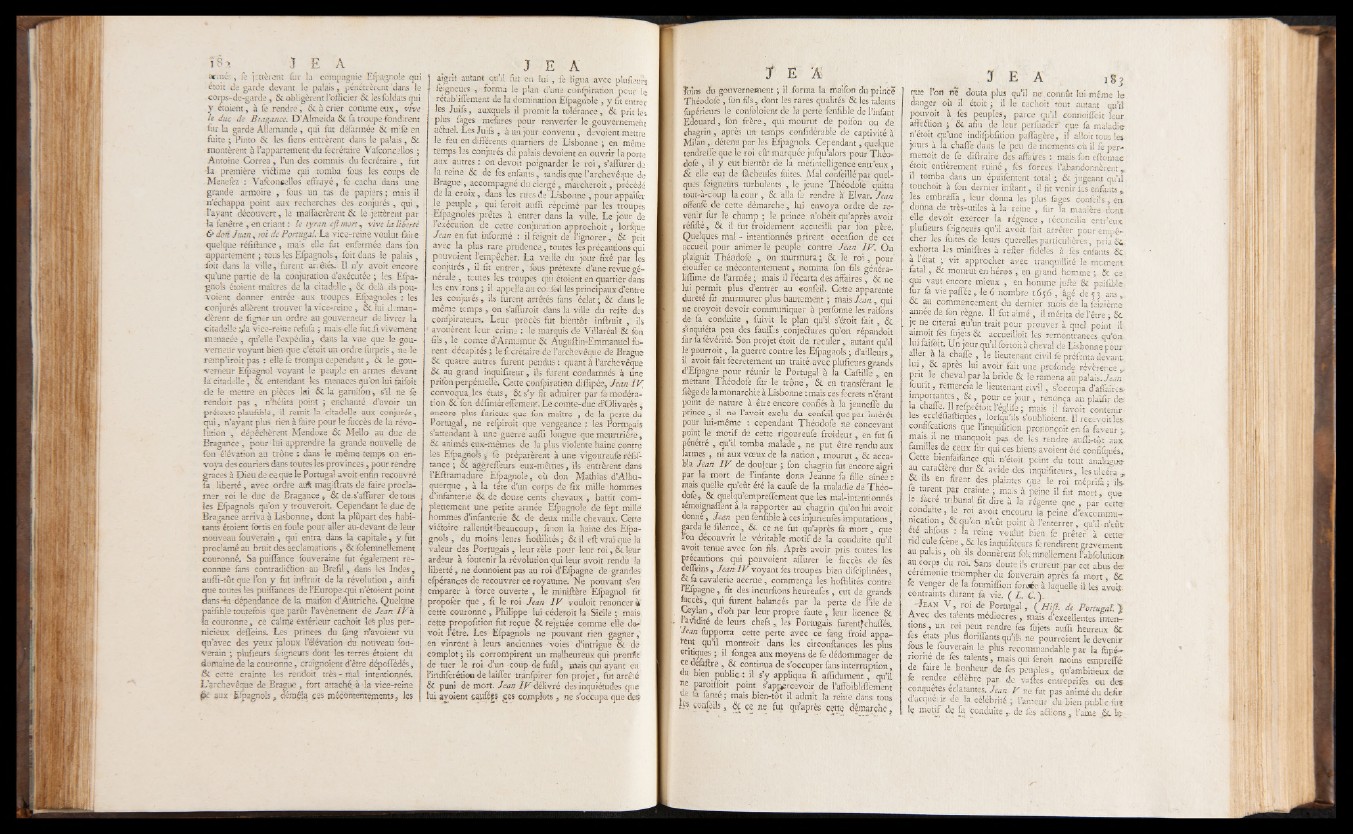 182 J E A
armés, se jettèrent sur la compagnie Espagnole qui
étoit de garde devant le palais, pénétrèrent dans le
corps-de-garde, & obligèrent l'officier & les soldats qui
y étoient, à se rendre, & à crier comme eux, vive
le duc de Bragance. D'Almeida & sa troupe fondirent
sur la garde Allemande, qui fut désarmée & mise en
fuite; Pinto & les siens entrèrent dans le palais, &
montèrent à l'appartement du secrétaire Vasconcellos;
Antoine Correa, l'un des commis du secrétaire, fut
la première victime qui tomba sous les coups de
Menesez : Vasconcellos effrayé, se cacha dans une
grande armoire, sous un tas de papiers; mais il
n'échappa point aux recherches des conjurés, qui,
l'ayant découvert, le massacrèrent & le jettèrent par
la fenêtre, en criant : le tyran est mort, vive la liberté
& don Juan, roi de Portugal. La vice-reine voulut faire
quelque résistance, mais elle fut enfermée dans son
appartement; tous les Espagnols, soit dans le palais,
soit dans la ville, furent arrêtés. Il n'y avoit encore
qu'une partie de la conjuration d'exécutée; les Espa-
gnols étoient maîtres de la citadelle, & delà ils pou-
voient donner entrée aux troupes Espagnoles : les
conjurés allèrent trouver la vice-reine, & lui deman-
dèrent de signer un ordre au gouverneur de livrer la
citadelle; la vice-reine refusa; mais elle fut si vivement
menacée, qu'elle l'expédia, dans la vue que le gou-
verneur voyant bien que c'étoit un ordre surpris, ne le
rempliroit pas : elle se trompa cependant, & le gou-
verneur Espagnol voyant le peuple en armes devant
la citadelle, & entendant les menaces qu'on lui faisoit
de le mettre en pièces lui & la garnison, s'il ne se
rendoit pas, n'hésita point; enchanté d'avoir un
prétexte plausible, il remit la citadelle aux conjurés,
qui, n'ayant plus rien à faire pour le succès de la révo-
lution, dépêchèrent Mendoze & Mello au duc de
Bragance, pour lui apprendre la grande nouvelle de
son élévation au trône : dans le même temps on en-
voya des couriers dans toutes les provinces, pour rendre
graces à Dieu de ce que le Portugal avoit enfin recouvré
sa liberté, avec ordre aux magistrats de faire procla-
mer roi le duc de Bragance, & de s'assurer de tous
les Espagnols qu'on y trouveroit. Cependant le duc de
Bragance arriva à Lisbonne, dont la plûpart des habi-
tants étoient sortis en foule pour aller au-devant de leur
nouveau souverain, qui entra dans la capitale, y fut
proclamé au bruit des acclamations, & solemnellement
couronné. Sa puissance souveraine fut également re-
connue sans contradiction au Bresil, dans les Indes,
aussi-tôt que l'on y fut instruit de la révolution, ainsi
que toutes les puissances de l'Europe qui n'étoient point
dans la dépendance de la maison d'Autriche. Quelque
paisible toutefois que parût l'avènement de Jean IV à
la couronne, ce calme extérieur cachoit les plus per-
nicieux desseins. Les princes du sang n'avoient vu
qu'avec des yeux jaloux l'élévation du nouveau sou-
verain; plusieurs seigneurs dont les terres étoient du
domaine de la couronne, craignoient d'être dépossédés,
& cette crainte les rendoit très-mal intentionnés.
L'archevêque de Brague, fort attaché à la vice-reine
& aux Espagnols, démêla ces mécontentements, les
J E A
aigrit autant qu'il fut en lui, se ligua avec plusieurs
seigneurs, forma le plan d'une conspiration pour le
rétablissement de la domination Espagnole, y fit entrer
les Juifs, auxquels il promit la tolérance, & prit les
plus sages mesures pour renverser le gouvernement
actuel. Les Juifs, à un jour convenu, devoient mettre
le feu en différents quartiers de Lisbonne; en même
temps les conjurés du palais devoient en ouvrir la porte
aux autres : on devoit poignarder le roi, s'assurer de
la reine & de ses enfants, tandis que l'archevêque de
Brague, accompagné du clergé, marcheroit, précédé
de la croix, dans les rues de Lisbonne, pour appaiser
le peuple, qui seroit aussi réprimé par les troupes
Espagnoles prêtes à entrer dans la ville. Le jour de
l'exécution de cette conjuration approchoit, lorsque
Jean en fut informé : il feignit de l'ignorer, & prit
avec la plus rare prudence, toutes les précautions qui
pouvoient l'empêcher. La veille du jour fixé par les
conjurés, il fit entrer, sous prétexte d'une revue gé-
nérale, toutes les troupes qui étoient en quartier dans
les environs; il appella au conseil les principaux d'entre
les conjurés, ils furent arrêtés sans éclat; & dans le
même temps, on s'assuroit dans la ville du reste des
conspirateurs. Leur procès fut bientôt instruit, ils
avouèrent leur crime : le marquis de Villaréal & son
fils, le comte d'Armamur & Augustin-Emmanuel fu-
rent décapités; le secrétaire de l'archevêque de Brague
& quatre autres furent pendus : quant à l'archevêque
& au grand inquisiteur, ils furent condamnés à une
prison perpétuelle. Cette conspiration dissipée, Jean IV
convoqua les états, & s'y fit admirer par sa modéra-
tion & son désintéressement. Le comte-duc d'Olivarès,
encore plus furieux que son maître, de la perte du
Portugal, ne respiroit que vengeance : les Portugais
s'attendant à une guerre aussi longue que meurtrière,
& animés eux-mêmes de la plus violente haine contre
les Espagnols, se préparèrent à une vigoureuse résis-
tance; & aggresseurs eux-mêmes, ils entrèrent dans
l'Estramadure Espagnole, où don Mathias d'Albu-
querque, à la tête d'un corps de six mille hommes
d'infanterie & de douze cents chevaux, battit com-
plettement une petite armée Espagnole de sept mille
hommes d'infanterie & de deux mille chevaux. Cette
victoire rallentit beaucoup, sinon la haine des Espa-
gnols, du moins leurs hostilités; & il est vrai que la
valeur des Portugais, leur zèle pour leur roi, & leur
ardeur à soutenir la révolution qui leur avoit rendu la
liberté, ne donnoient pas au roi d'Espagne de grandes
espérances de recouvrer ce royaume. Ne pouvant s'en
emparer à force ouverte, le ministère Espagnol fit
proposer que, si le roi Jean IV vouloit renoncer à
cette couronne, Philippe lui céderoit la Sicile; mais
cette proposition fut reçue & rejettée comme elle de-
voit l'être. Les Espagnols ne pouvant rien gagner,
en vinrent à leurs anciennes voies d'intrigue & de
complot; ils corrompirent un malheureux qui promit
de tuer le roi d'un coup de fusil, mais qui ayant eu
l'indiscrétion de laisser transpirer son projet, fut arrêté
& puni de mort. Jean IV délivré des inquiétudes que
lui avoient causées ces complots, ne s'occupa que des
J E A
soins du gouvernement; il forma la maison du prince
Théodose, son fils, dont les rares qualités & les talents
supérieurs le consoloient de la perte sensible de l'infant
Edouard, son frère, qui mourut de poison ou de
chagrin, après un temps considérable de captivité à
Milan, détenu par les Espagnols. Cependant, quelque
tendresse que le roi eût marquée jusqu'alors pour Théo-
dose, il y eut bientôt de la mésintelligence entr'eux,
& elle eut de fâcheuses suites. Mal conseillé par quel-
ques seigneurs turbulents, le jeune Théodose quitta
tout-à-coup la cour, & alla se rendre à Elvar. Jean
offensé de cette démarche, lui envoya ordre de re-
venir sur le champ; le prince n'obéit qu'après avoir
résisté, & il fut froidement accueilli par son père.
Quelques mal-intentionnés prirent occasion de cet
accueil pour animer le peuple contre Jean IV. On
plaignit Théodose, on murmura; & le roi, pour
étouffer ce mécontentement, nomma son fils généra-
lissime de l'armée; mais il l'écarta des affaires, & ne
lui permit plus d'entrer au conseil. Cette apparente
dureté fit murmurer plus hautement; mais Jean, qui
ne croyoit devoir communiquer à personne les raisons
de sa conduite, suivit le plan qu'il s'étoit fait, &
s'inquiéta peu des fausses conjectures qu'on répandoit
sur sa sévérité. Son projet étoit de reculer, autant qu'il
le pourroit, la guerre contre les Espagnols; d'ailleurs,
il avoit fait secrètement un traité avec plusieurs grands
d'Espagne pour réunir le Portugal à la Castille, en
mettant Théodose sur le trône, & en transférant le
siège de la monarchie à Lisbonne : mais ces secrets n'étant
point de nature à être encore confiés à la jeunesse du
prince, il ne l'avoit exclu du conseil que par intérêt
pour lui-même : cependant Théodose ne concevant
point le motif de cette rigoureuse froideur, en fut si
pénétré, qu'il tomba malade, ne put être rendu aux
larmes, ni aux vœux de la nation, mourut, & acca-
bla Jean IV de douleur; son chagrin fut encore aigri
par la mort de l'infante dona Jeanne sa fille aînée :
mais quelle qu'eût été la cause de la maladie de Théo-
dose, & quelqu'empressement que les mal-intentionnés
témoignassent à la rapporter au chagrin qu'on lui avoit
donné, Jean peu sensible à ces injurieuses imputations,
garda le silence, & ce ne fut qu'après sa mort, que
l'on découvrit le véritable motif de la conduite qu'il
avoit tenue avec son fils. Après avoir pris toutes les
précautions qui pouvoient assurer le succès de ses
desseins, Jean IV voyant ses troupes bien disciplinées,
& sa cavalerie accrue, commença les hostilités contre
l'Espagne, fit des incursions heureuses, eut de grands
succès, qui furent balancés par la perte de l'isle de
Ceylan, d'où par leur propre faute, leur licence &
l'avidité de leurs chefs, les Portugais furent chassés.
Jean supporta cette perte avec ce sang froid appa-
rent qu'il montroit dans les circonstances les plus
critiques; il songea aux moyens de se dédommager de
ce désastre, & continua de s'occuper sans interruption,
du bien public : il s'y appliqua si assidument, qu'il
ne paroissoit point s'appercevoir de l'affoiblissement
de sa santé; mais bien-tôt il admit la reine dans tous
les conseils, & ce ne fut qu'après cette démarche,
J E A 183
que l'on ne douta plus qu'il ne connût lui-même le
danger où il étoit; il le cachoit tout autant qu'il
pouvoit à ses peuples, parce qu'il connoissoit leur
affection; & afin de leur persuader que sa maladie
n'étoit qu'une indisposition passagère, il alloit tous les
jours à la chasse dans le peu de moments où il se per-
mettoit de se distraire des affaires : mais son estomac
étoit entièrement ruiné, ses forces l'abandonnèrent,
il tomba dans un épuisement total; & jugeant qu'il
touchoit à son dernier instant, il fit venir ses enfants,
les embrassa, leur donna les plus sages conseils, en
donna de très-utiles à la reine, sur la manière dont
elle devoit exercer la régence, réconcilia entr'eux
plusieurs seigneurs qu'il avoit fait arrêter pour empê-
cher les suites de leurs querelles particulières, pria &
exhorta les ministres à rester fidèles à ses enfants &
à l'état; vit approcher avec tranquillité le moment
fatal, & mourut en héros, en grand homme; & ce
qui vaut encore mieux, en homme juste & paisible
sur sa vie passée, le 6 nombre 1656, âgé de 53 ans,
& au commencement du dernier mois de la seizième
année de son règne. Il fut aimé, il mérita de l'être, &
je ne citerai qu'un trait pour prouver à quel point il
aimoit ses sujets & accueilloit les remontrances qu'on
lui faisoit. Un jour qu'il sortoit à cheval de Lisbonne pour
aller à la chasse, le lieutenant civil se présenta devant
lui, & après lui avoir fait une profonde révérence,
prit le cheval par la bride & le ramena au palais. Jean
sourit, remercia le lieutenant civil, s'occupa d'affaires
importantes, &, pour ce jour, renonça au plaisir de
la chasse. Il respectoit l'église; mais il savoit contenir
les ecclésiastiques, lorsqu'ils s'oublioient. Il recevoit les
confiscations que l'inquisition prononçoit en sa faveur;
mais il ne manquoit pas de les rendre aussi-tôt aux
familles de ceux sur qui ces biens avoient été confisqués.
Cette bienfaisance qui n'étoit point du tout analogue
au caractère dur & avide des inquisiteurs, les ulcéra,
& ils en firent des plaintes que le roi méprisa; ils
se turent par crainte; mais à peine il fut mort, que
le sacré tribunal fit dire à la régente que, par cette
conduite, le roi avoit encouru la peine d'excommu-
nication, & qu'on n'eût point à l'enterrer, qu'il n'eût
été absous : la reine voulut bien se prêter à cette
ridicule scène, & les inquisiteurs se rendirent gravement
au palais, où ils donnèrent solemnellement l'absolution
au corps du roi. Sans doute ils crurent par cet abus de
cérémonie triompher du souverain après sa mort, &
se venger de la soumission forcée à laquelle il les avoit
contraints durant sa vie. ( L. C. )
JEAN V, roi de Portugal, ( Hist. de Portugal. )
Avec des talents médiocres, mais d'excellentes inten-
tions, un roi peut rendre ses sujets aussi heureux &
ses états plus florissants qu'ils ne pourroient le devenir
sous le souverain le plus recommandable par la supé-
riorité de ses talents, mais qui seroit moins empressé
de faire le bonheur de ses peuples, qu'ambitieux de
se rendre célèbre par de vastes entreprises ou des
conquêtes éclatantes. Jean V ne fut pas animé du desir
d'acquérir de la célébrité; l'amour du bien public fut
le motif de sa conduite, de ses actions, l'ame & le